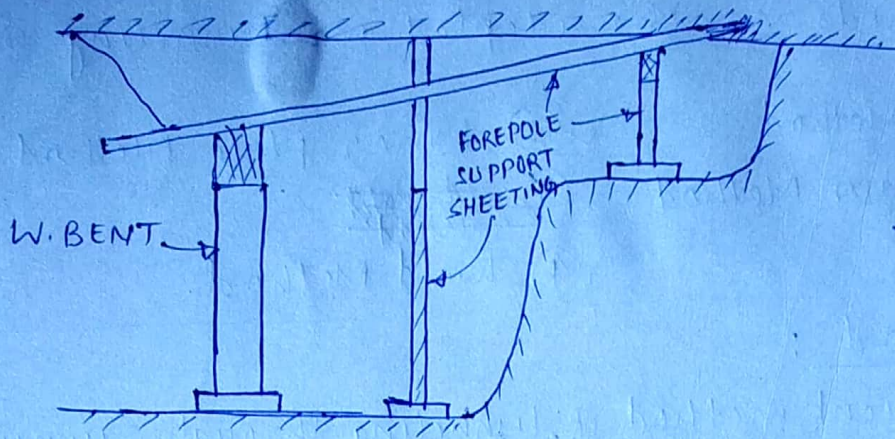 FOREPOLE
SUPPORT
SHEETING
W. BENT